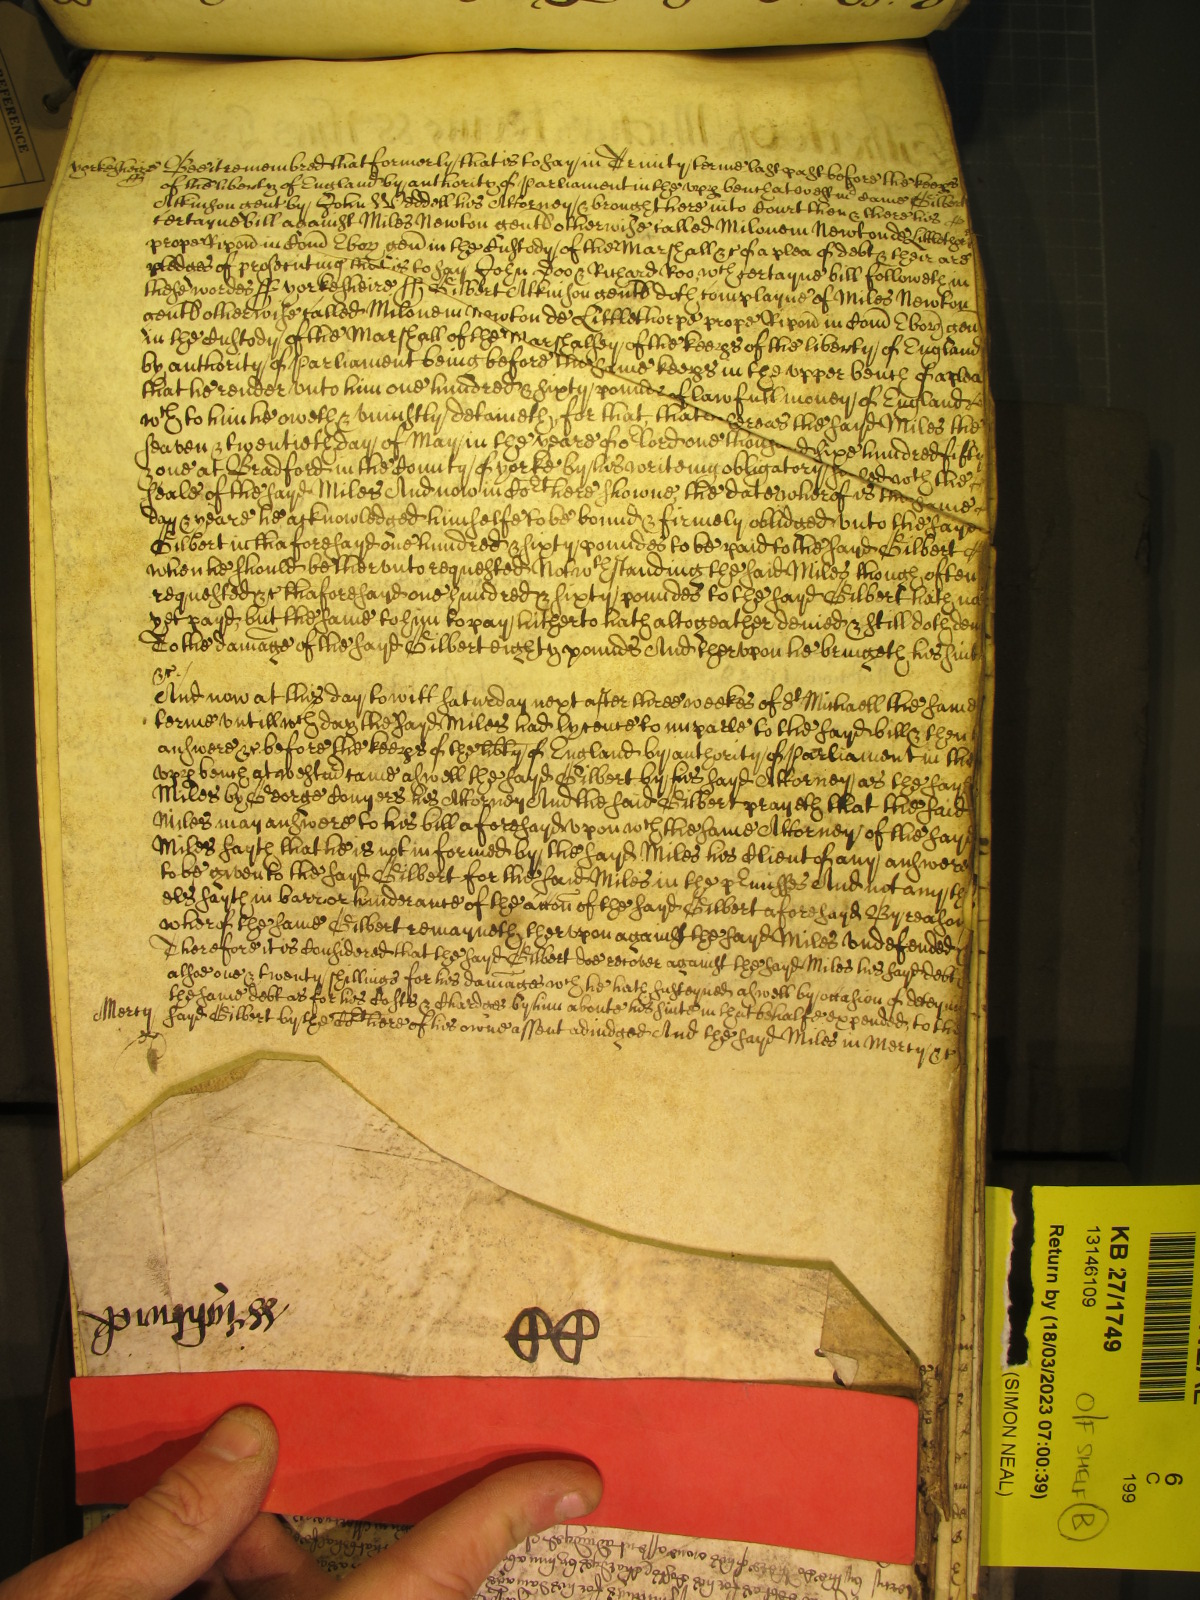 yorkesheire Bee it remembred that formerly that is to say in Trinity terme last past before the keeps
of the liberty of England by authority of Parliament in the upp bench at westm came Gilbert
Atkinson gent by John Weddell his Attorney & brought here into Court then & there his
certayne bill against Miles Newton gent otherwise called Milonem Newton de Littlethorpe
prope Ripon in Com Ebor gen in the Custody of the Marshall &c of a plea of debt & their are
pledges of prosecuting that is to say John Doo & Richard Roo wch certayne bill followeth in
these wordes ss yorkesheire ss Gilbert Atkinson gent doth complayne of Miles Newton
gent otherwise called Milonem Newton de Littlethorpe prope Ripon in Com Ebor gen
in the Custody of the Marshall of the Marshalsey of the keeps of the liberty of England
by authority of Parliament being before the same keeps in the upper bench of a plea
that he render unto him one hundred & sixty pounds of lawfull money of England
wch to him he oweth & uniustly detaineth for that that whereas the sayd Miles the
seaven & twentieth day of May in the yeare of or Lord one thousand sixe hundred fifty
& one at Bradford in the County of yorke by his writeing obligatory sealed with the
seale of the sayd Miles And now in Cort here showne the date wherof is the same
day & yeare he acknowledged himselfe to be bound & firmely obliged unto the sayd
Gilbert in thaforesayd one hundred & sixty poundes to be paid to the sayd Gilbert
when he should be therunto requested Notwthstanding the said Miles though often
requested &c thaforesayd one hundred & sixty poundes to the sayd Gilbert hath no
yet payd but the same to hym to pay hitherto hath altogeather denied & still doth den
To the damage of the sayd Gilbert eighty pounds And therupon he bringeth his suit
&c.
And now at this day to witt Saturday next after three weekes of St Michaell the same
terme untill wch day the sayd Miles had lycence to imparle to the sayd bill & then
answere &c before the keeps of the libty of England by authority of Parliament in the
upp bench at westm came aswell the sayd Gilbert by his sayd Attorney as the sayd
Miles by George Conyers his Attorney And the said Gilbert prayeth that the said
Miles may answere to his bill aforesayd upon wch the same Attorney of the sayd
Miles sayth that he is not informed by the sayd Miles his Client of any answere
to be given to the sayd Gilbert for the said Miles in the pmisses And not any th
els sayth in barr or hinderance of the accon of the sayd Gilbert aforesayd By reason
wherof the same Gilbert remayneth therupon against the sayd Miles undefended
Therefore it is Considered that the sayd Gilbert doe recover against the sayd Miles his sayd debt
alsoe one & twenty shillings for his damages wch he hath susteyned aswell by occasion of deteyn
the same debt as for his Costs & Chardges by him aboute his suite in that behalfe expended to the
Mercy sayd Gilbert by the Cort here of his owne assent adiudged And the sayd Miles in Mercy &c
Wightwick
KB 27/1749
13146109
Return by (18/03/2023 07:00:39)
(SIMON NEAL)
O/F SHELF B
6
C
199
REFERENCE